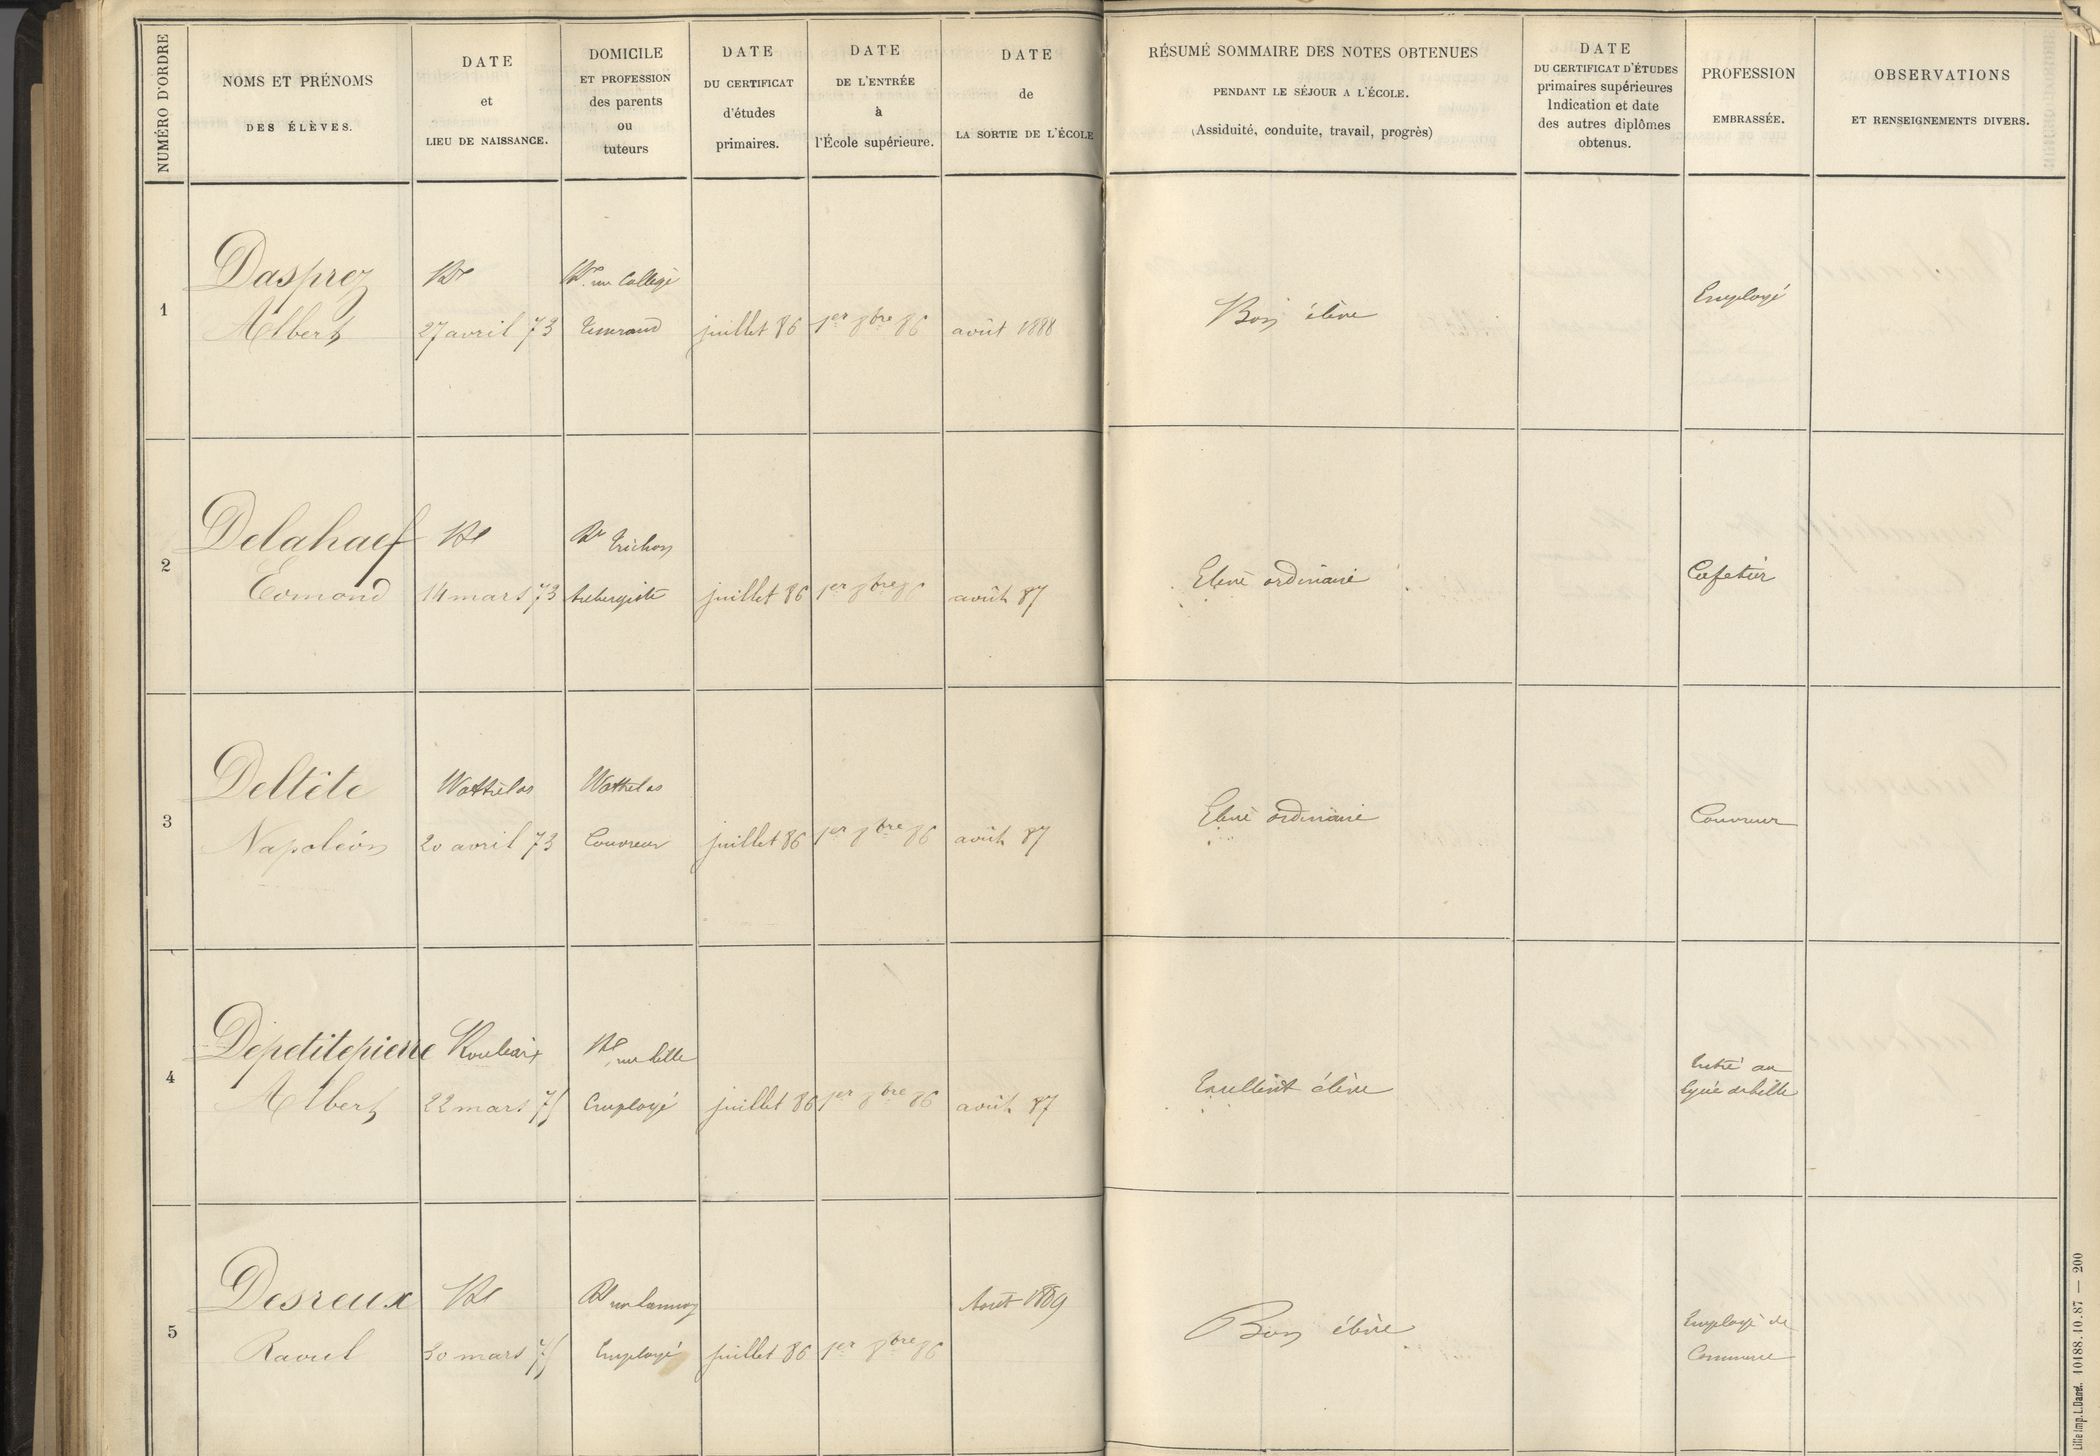 NUMÉRO D'ORDRE
NOMS ET PRÉNOMS
DES ÉLÈVES.
DATE
et
LIEU DE NAISSANCE.
DOMICILE
ET PROFESSION
des parents
ou
tuteurs
DATE
DU CERTIFICAT
d'études
primaires.
DATE
DE L'ENTRÉE
à
l'École supérieure.
DATE
de
LA SORTIE DE L'ÉCOLE
RÉSUMÉ SOMMAIRE DES NOTES OBTENUES
PENDANT LE SÉJOUR A L'ÉCOLE.
(Assiduité, conduite, travail, progrès)
DATE
DU CERTIFICAT D'ÉTUDES
primaires supérieures
Indication et date
des autres diplômes
obtenus.
PROFESSION
EMBRASSÉE.
OBSERVATIONS
ET RENSEIGNEMENTS DIVERS.
1
Dasprez
Albert
Rx
27 avril 73
Rx rue Collège
juillet 86
1er 8bre 86
août 1888
Bon élève
Employé
2
Delahaef
Edmond
Rx
14 mars 73
Rx Trichon
Aubergiste
juillet 86
1er 8bre 86
août 87
Elève ordinaire
Cafetier
3
Deltête
Napoléon
Wattrelos
20 avril 73
Wattrelos
Couvreur
juillet 86
1er 8bre 86
août 87
Elève ordinaire
Couvreur
4
Depetitepierre
Albert
Roubaix
22 mars 75
Rx rue Lille
Employé
juillet 86
1er 8bre 86
août 87
Excellent élève
Entré au
lycée de Lille
5
Desreux
Raoul
Rx
30 mars 75
Rx rue Lannoy
Employé
juillet 86
1er 8bre 86
Août 1889
Bon élève
Employé de
Commerce
Lille Imp. L. Danel. 10188.10.87 — 200